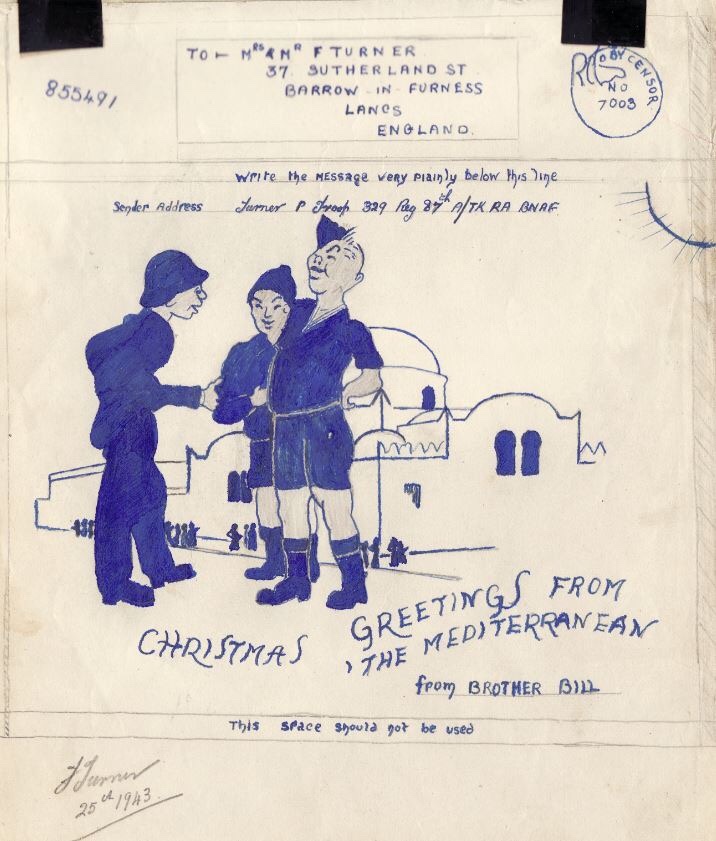 TO - MRS & MR F TURNER
37. SUTHERLAND ST
BARROW-IN-FURNESS
LANCS
ENGLAND.
855491
BY CENSOR
NO
7003
Write the MESSAGE very plainly below this line
Sender Address Turner P Troop 329 Reg 87th A/TK RA BNAF
CHRISTMAS GREETINGS FROM
THE MEDITERRANEAN
from BROTHER BILL
This space should not be used
F Turner
25th 1943.